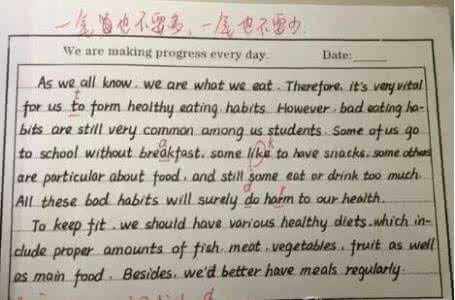 一笔首也不要多，一笔也不要少
We are making progress every day. Date:
As we all know, we are what we eat. Therefore, it's very vital
for us to form healthy eating habits. However, bad eating ha-
bits are still very common among us students. Some of us go
to school without breakfast, some like to have snacks, some others
are particular about food, and still some eat or drink too much.
All these bad habits will surely do harm to our health.
To keep fit, we should have various healthy diets, which in-
clude proper amounts of fish, meat, vegetables, fruit as well
as main food. Besides, we'd better have meals regularly.